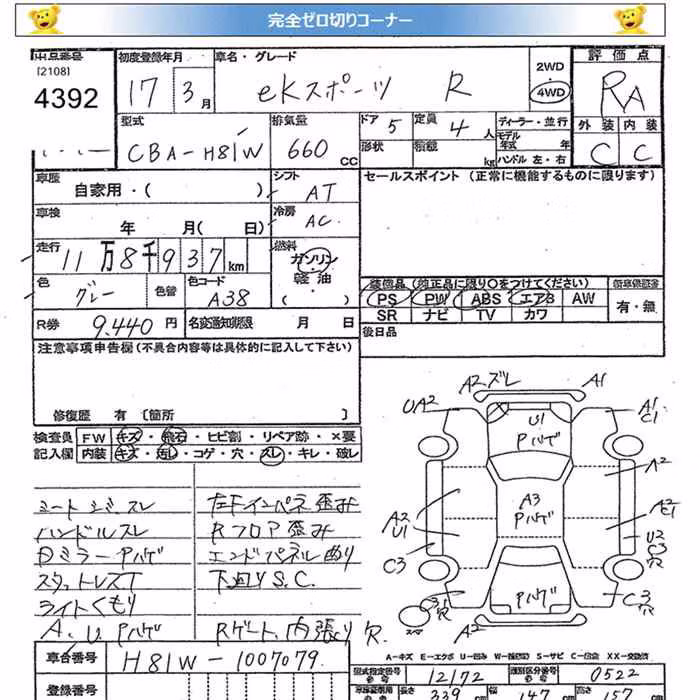 完全ゼロ切りコーナー
出品番号
[2108]
4392
初度登録年月
17 3月
車名・グレード
eKスポーツ R
2WD
4WD
評価点
RA
外装 内装
C C
型式
CBA-H81W
排気量
660 cc
ドア 5
形状
定員 4 人
積載 kg
ディーラー・並行
モデル年式 年
ハンドル 左・右
車歴
自家用・( )
シフト
AT
セールスポイント (正常に機能するものに限ります)
車検
年 月( 日)
冷房
AC
走行
11万8千937km
燃料
ガソリン
軽油
・( )
色
グレー
色替
色コード
A38
装備品 (純正品に限り○をつけてください)
PS PW ABS エアB AW
SR ナビ TV カワ
新車保証書
有・無
R券 9,440 円
名変通知期限 月 日
後日品
注意事項申告欄(不具合内容等は具体的に記入して下さい)
修復歴 有 [箇所 ]
検査員記入欄
FW キズ・飛石・ヒビ割・リペア跡・×要
内装 キズ・汚レ・コゲ・穴・スレ・キレ・破レ
シートシミ スレ
ハンドルスレ
Dミラー Pハゲ
スタットレスT
ライトくもり
A、U、Pハゲ
左Fインパネ歪み
Rフロア歪み
エンドパネル曲り
下廻りS.C.
Rゲート内張り穴
A2ズレ A1
UA2
U1
Pハゲ
A1
C1
A2
A3
Pハゲ
A2
U1
A2
C3
U2
C3
穴
Pハゲ
C3
穴
C3
穴
スマ
A2
A-キズ E-エクボ U-凹み W-波(補修) S-サビ C-腐食 XX-交換済
車台番号
H81W-1007079
型式指定番号
12172
類別区分番号
0522
登録番号
長さ 339 cm
幅 147 cm
高さ 157